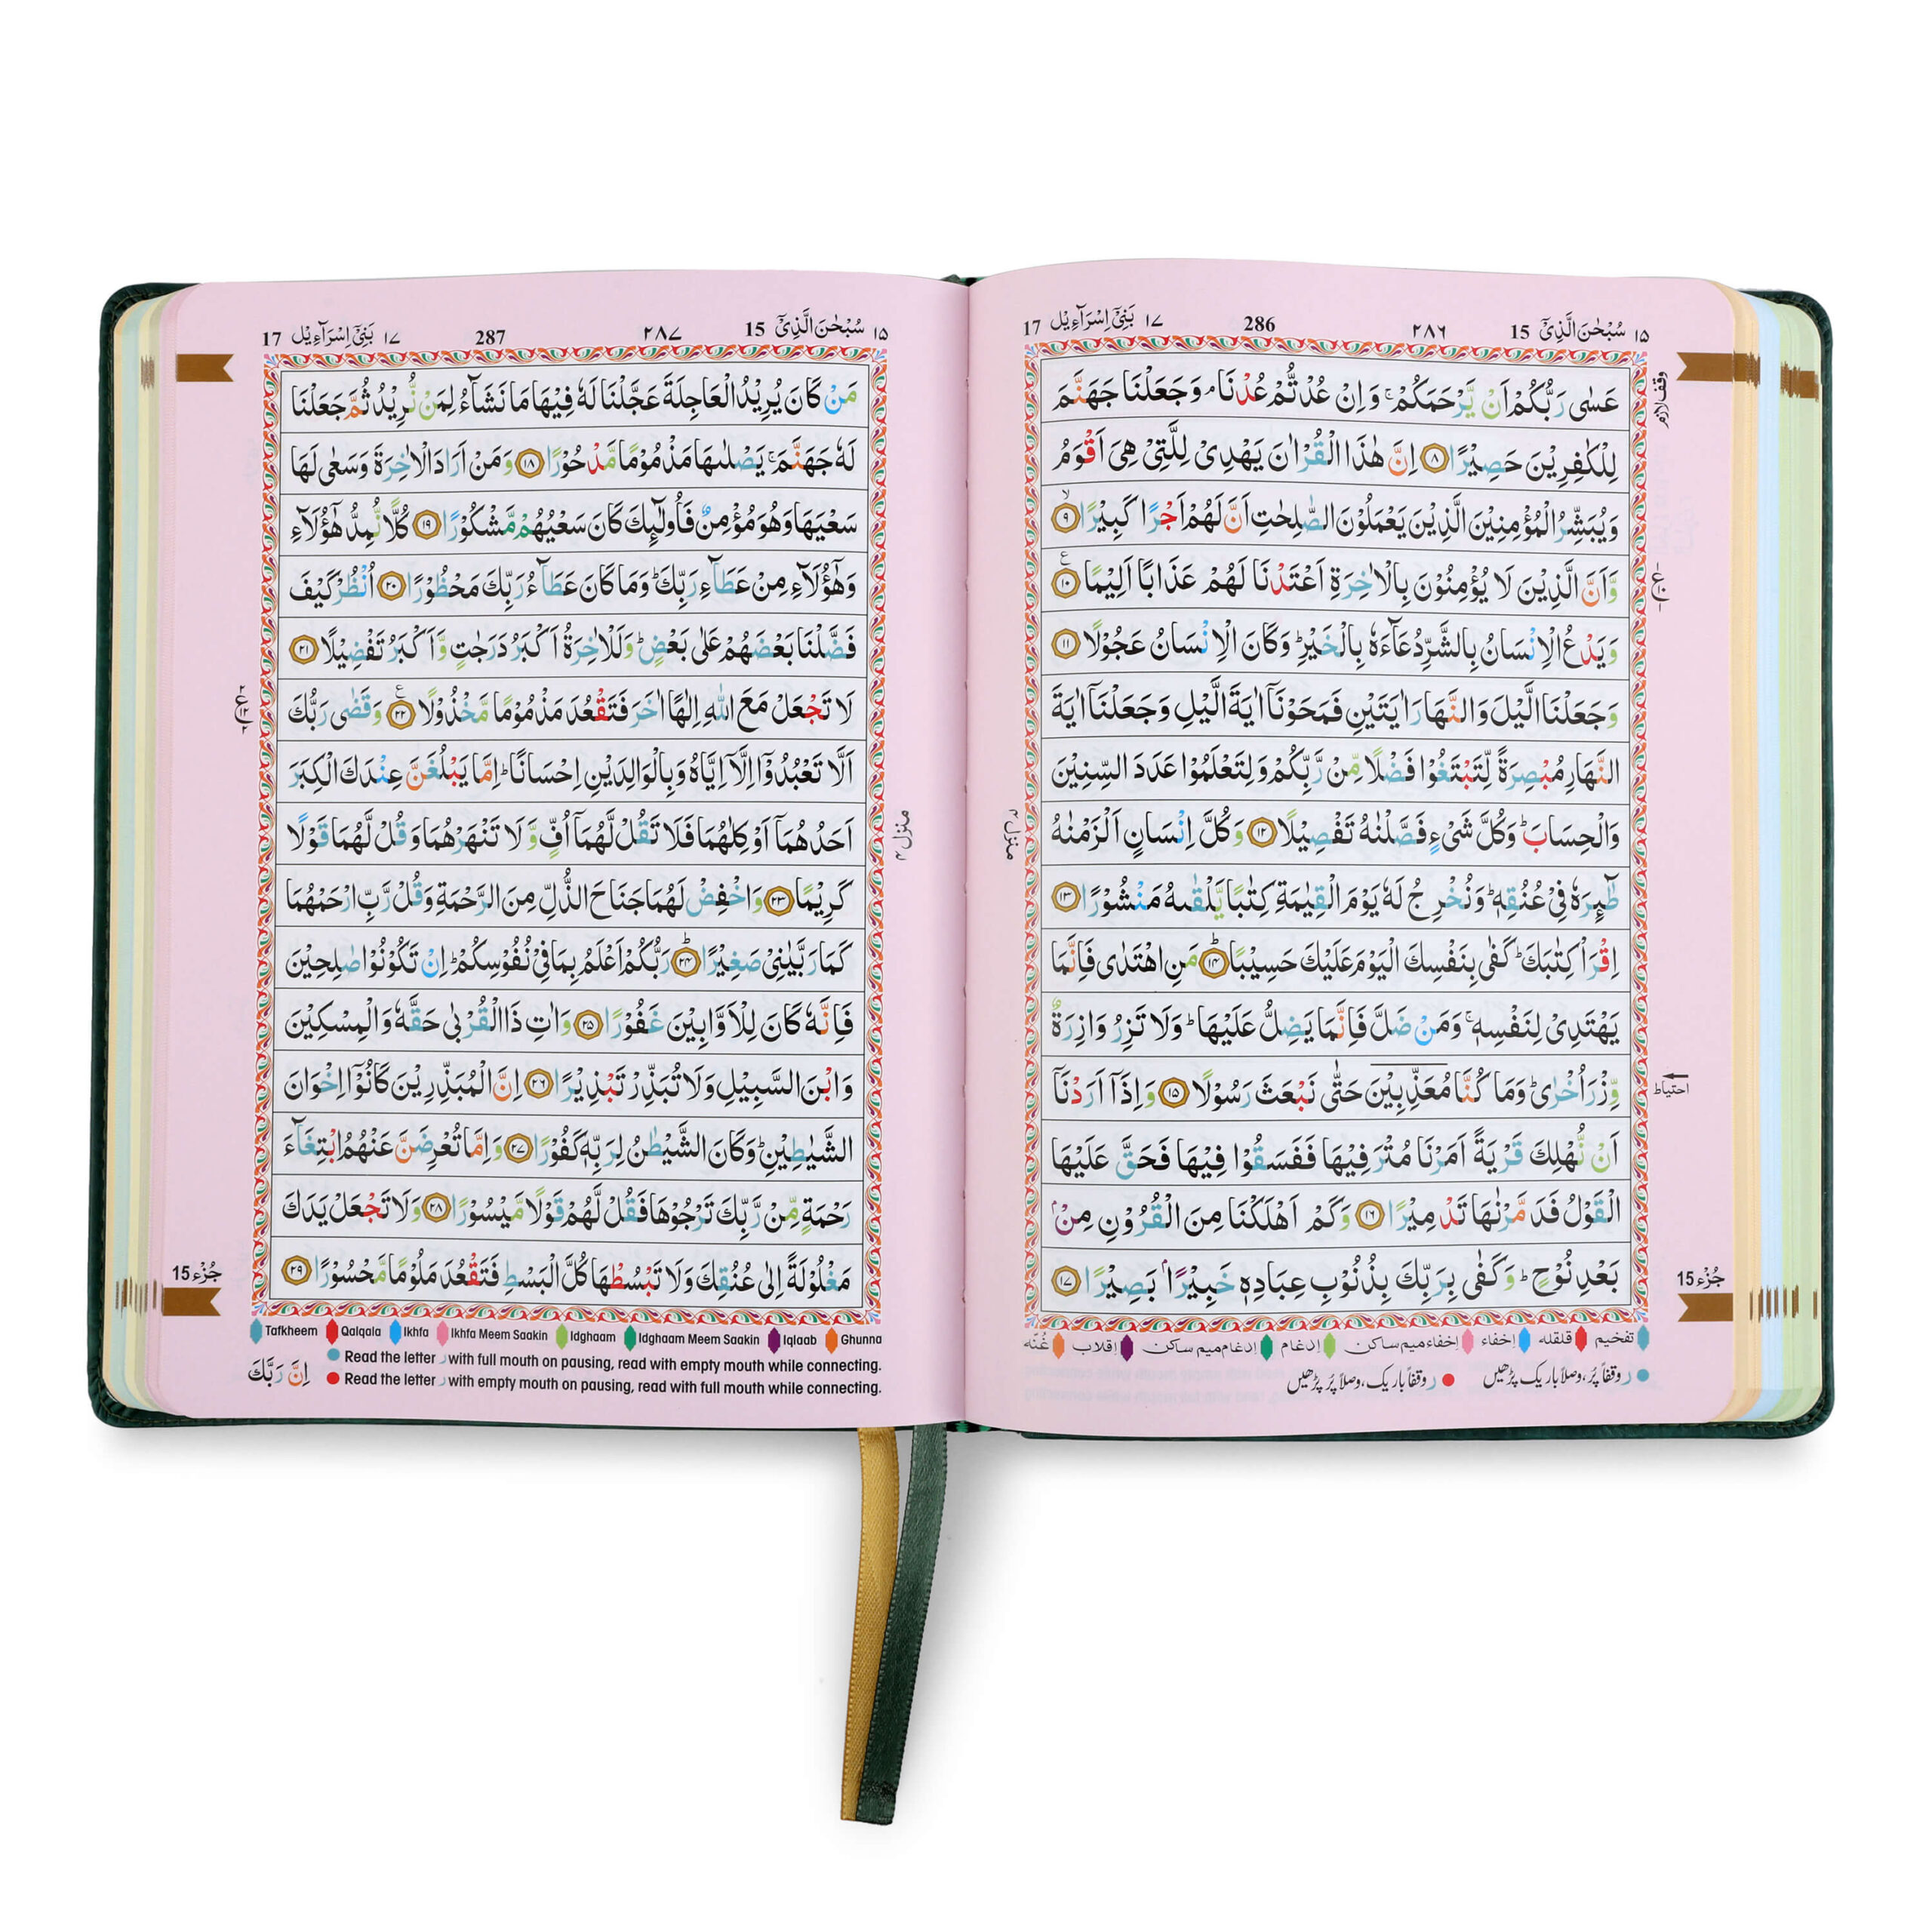 ١٥ سُبْحٰنَ الَّذِيْٓ 15 ٢٨٦ 286 ١٧ بَنِيْٓ اِسْرَآءِيْل 17
عَسٰى رَبُّكُمْ اَنْ يَّرْحَمَكُمْ ۚ وَاِنْ عُدْتُّمْ عُدْنَا ۘ وَجَعَلْنَا جَهَنَّمَ
لِلْكٰفِرِيْنَ حَصِيْرًا ٨ اِنَّ هٰذَا الْقُرْاٰنَ يَهْدِىْ لِلَّتِىْ هِىَ اَقْوَمُ
وَيُبَشِّرُ الْمُؤْمِنِيْنَ الَّذِيْنَ يَعْمَلُوْنَ الصّٰلِحٰتِ اَنَّ لَهُمْ اَجْرًا كَبِيْرًا ٩
وَّاَنَّ الَّذِيْنَ لَا يُؤْمِنُوْنَ بِالْاٰخِرَةِ اَعْتَدْنَا لَهُمْ عَذَابًا اَلِيْمًا ١٠
وَيَدْعُ الْاِنْسَانُ بِالشَّرِّ دُعَآءَهٗ بِالْخَيْرِ ؕ وَكَانَ الْاِنْسَانُ عَجُوْلًا ١١
وَجَعَلْنَا الَّيْلَ وَالنَّهَارَ اٰيَتَيْنِ فَمَحَوْنَآ اٰيَةَ الَّيْلِ وَجَعَلْنَآ اٰيَةَ
النَّهَارِ مُبْصِرَةً لِّتَبْتَغُوْا فَضْلًا مِّنْ رَّبِّكُمْ وَلِتَعْلَمُوْا عَدَدَ السِّنِيْنَ
وَالْحِسَابَ ؕ وَكُلَّ شَىْءٍ فَصَّلْنٰهُ تَفْصِيْلًا ١٢ وَكُلَّ اِنْسَانٍ اَلْزَمْنٰهُ
طٰٓئِرَهٗ فِىْ عُنُقِهٖ ؕ وَنُخْرِجُ لَهٗ يَوْمَ الْقِيٰمَةِ كِتٰبًا يَّلْقٰىهُ مَنْشُوْرًا ١٣
اِقْرَاْ كِتٰبَكَ ؕ كَفٰى بِنَفْسِكَ الْيَوْمَ عَلَيْكَ حَسِيْبًا ١٤ مَنِ اهْتَدٰى فَاِنَّمَا
يَهْتَدِىْ لِنَفْسِهٖ ۚ وَمَنْ ضَلَّ فَاِنَّمَا يَضِلُّ عَلَيْهَا ؕ وَلَا تَزِرُ وَازِرَةٌ
وِّزْرَ اُخْرٰى ؕ وَمَا كُنَّا مُعَذِّبِيْنَ حَتّٰى نَبْعَثَ رَسُوْلًا ١٥ وَاِذَآ اَرَدْنَآ
اَنْ نُّهْلِكَ قَرْيَةً اَمَرْنَا مُتْرَفِيْهَا فَفَسَقُوْا فِيْهَا فَحَقَّ عَلَيْهَا
الْقَوْلُ فَدَمَّرْنٰهَا تَدْمِيْرًا ١٦ وَكَمْ اَهْلَكْنَا مِنَ الْقُرُوْنِ مِنْۢ
بَعْدِ نُوْحٍ ؕ وَكَفٰى بِرَبِّكَ بِذُنُوْبِ عِبَادِهٖ خَبِيْرًاۢ بَصِيْرًا ١٧
تفخیم قلقله إخفاء إخفاء میم ساکن إدغام إدغام میم ساکن إقلاب غُنّه
ر وقفاً پُر، وصلاً باریک پڑھیں ر وقفاً باریک، وصلاً پُر پڑھیں
وقف لازم
احتیاط
منزل ٤
جُزْء 15
١٥ سُبْحٰنَ الَّذِيْٓ 15 ٢٨٧ 287 ١٧ بَنِيْٓ اِسْرَآءِيْل 17
مَنْ كَانَ يُرِيْدُ الْعَاجِلَةَ عَجَّلْنَا لَهٗ فِيْهَا مَا نَشَآءُ لِمَنْ نُّرِيْدُ ثُمَّ جَعَلْنَا
لَهٗ جَهَنَّمَ ۚ يَصْلٰىهَا مَذْمُوْمًا مَّدْحُوْرًا ١٨ وَمَنْ اَرَادَ الْاٰخِرَةَ وَسَعٰى لَهَا
سَعْيَهَا وَهُوَ مُؤْمِنٌ فَاُولٰٓئِكَ كَانَ سَعْيُهُمْ مَّشْكُوْرًا ١٩ كُلًّا نُّمِدُّ هٰٓؤُلَآءِ
وَهٰٓؤُلَآءِ مِنْ عَطَآءِ رَبِّكَ ؕ وَمَا كَانَ عَطَآءُ رَبِّكَ مَحْظُوْرًا ٢٠ اُنْظُرْ كَيْفَ
فَضَّلْنَا بَعْضَهُمْ عَلٰى بَعْضٍ ؕ وَلَلْاٰخِرَةُ اَكْبَرُ دَرَجٰتٍ وَّاَكْبَرُ تَفْضِيْلًا ٢١
لَا تَجْعَلْ مَعَ اللّٰهِ اِلٰهًا اٰخَرَ فَتَقْعُدَ مَذْمُوْمًا مَّخْذُوْلًا ٢٢ وَقَضٰى رَبُّكَ
اَلَّا تَعْبُدُوْٓا اِلَّآ اِيَّاهُ وَبِالْوَالِدَيْنِ اِحْسَانًا ؕ اِمَّا يَبْلُغَنَّ عِنْدَكَ الْكِبَرَ
اَحَدُهُمَآ اَوْ كِلٰهُمَا فَلَا تَقُلْ لَّهُمَآ اُفٍّ وَّلَا تَنْهَرْهُمَا وَقُلْ لَّهُمَا قَوْلًا
كَرِيْمًا ٢٣ وَاخْفِضْ لَهُمَا جَنَاحَ الذُّلِّ مِنَ الرَّحْمَةِ وَقُلْ رَّبِّ ارْحَمْهُمَا
كَمَا رَبَّيٰنِىْ صَغِيْرًا ٢٤ رَبُّكُمْ اَعْلَمُ بِمَا فِىْ نُفُوْسِكُمْ ؕ اِنْ تَكُوْنُوْا صٰلِحِيْنَ
فَاِنَّهٗ كَانَ لِلْاَوَّابِيْنَ غَفُوْرًا ٢٥ وَاٰتِ ذَا الْقُرْبٰى حَقَّهٗ وَالْمِسْكِيْنَ
وَابْنَ السَّبِيْلِ وَلَا تُبَذِّرْ تَبْذِيْرًا ٢٦ اِنَّ الْمُبَذِّرِيْنَ كَانُوْٓا اِخْوَانَ
الشَّيٰطِيْنِ ؕ وَكَانَ الشَّيْطٰنُ لِرَبِّهٖ كَفُوْرًا ٢٧ وَاِمَّا تُعْرِضَنَّ عَنْهُمُ ابْتِغَآءَ
رَحْمَةٍ مِّنْ رَّبِّكَ تَرْجُوْهَا فَقُلْ لَّهُمْ قَوْلًا مَّيْسُوْرًا ٢٨ وَلَا تَجْعَلْ يَدَكَ
مَغْلُوْلَةً اِلٰى عُنُقِكَ وَلَا تَبْسُطْهَا كُلَّ الْبَسْطِ فَتَقْعُدَ مَلُوْمًا مَّحْسُوْرًا ٢٩
Tafkheem Qalqala Ikhfa Ikhfa Meem Saakin Idghaam Idghaam Meem Saakin Iqlaab Ghunna
Read the letter ر with full mouth on pausing, read with empty mouth while connecting.
Read the letter ر with empty mouth on pausing, read with full mouth while connecting.
اِنَّ رَبَّكَ
منزل ٤
جُزْء 15